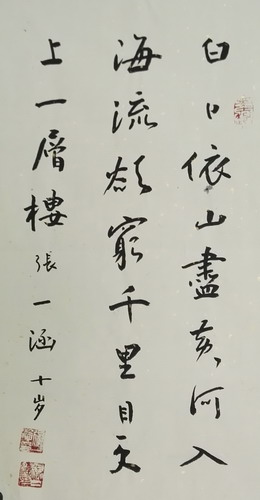 白日依山盡黃河入
海流欲窮千里目更
上一層樓張一涵十岁